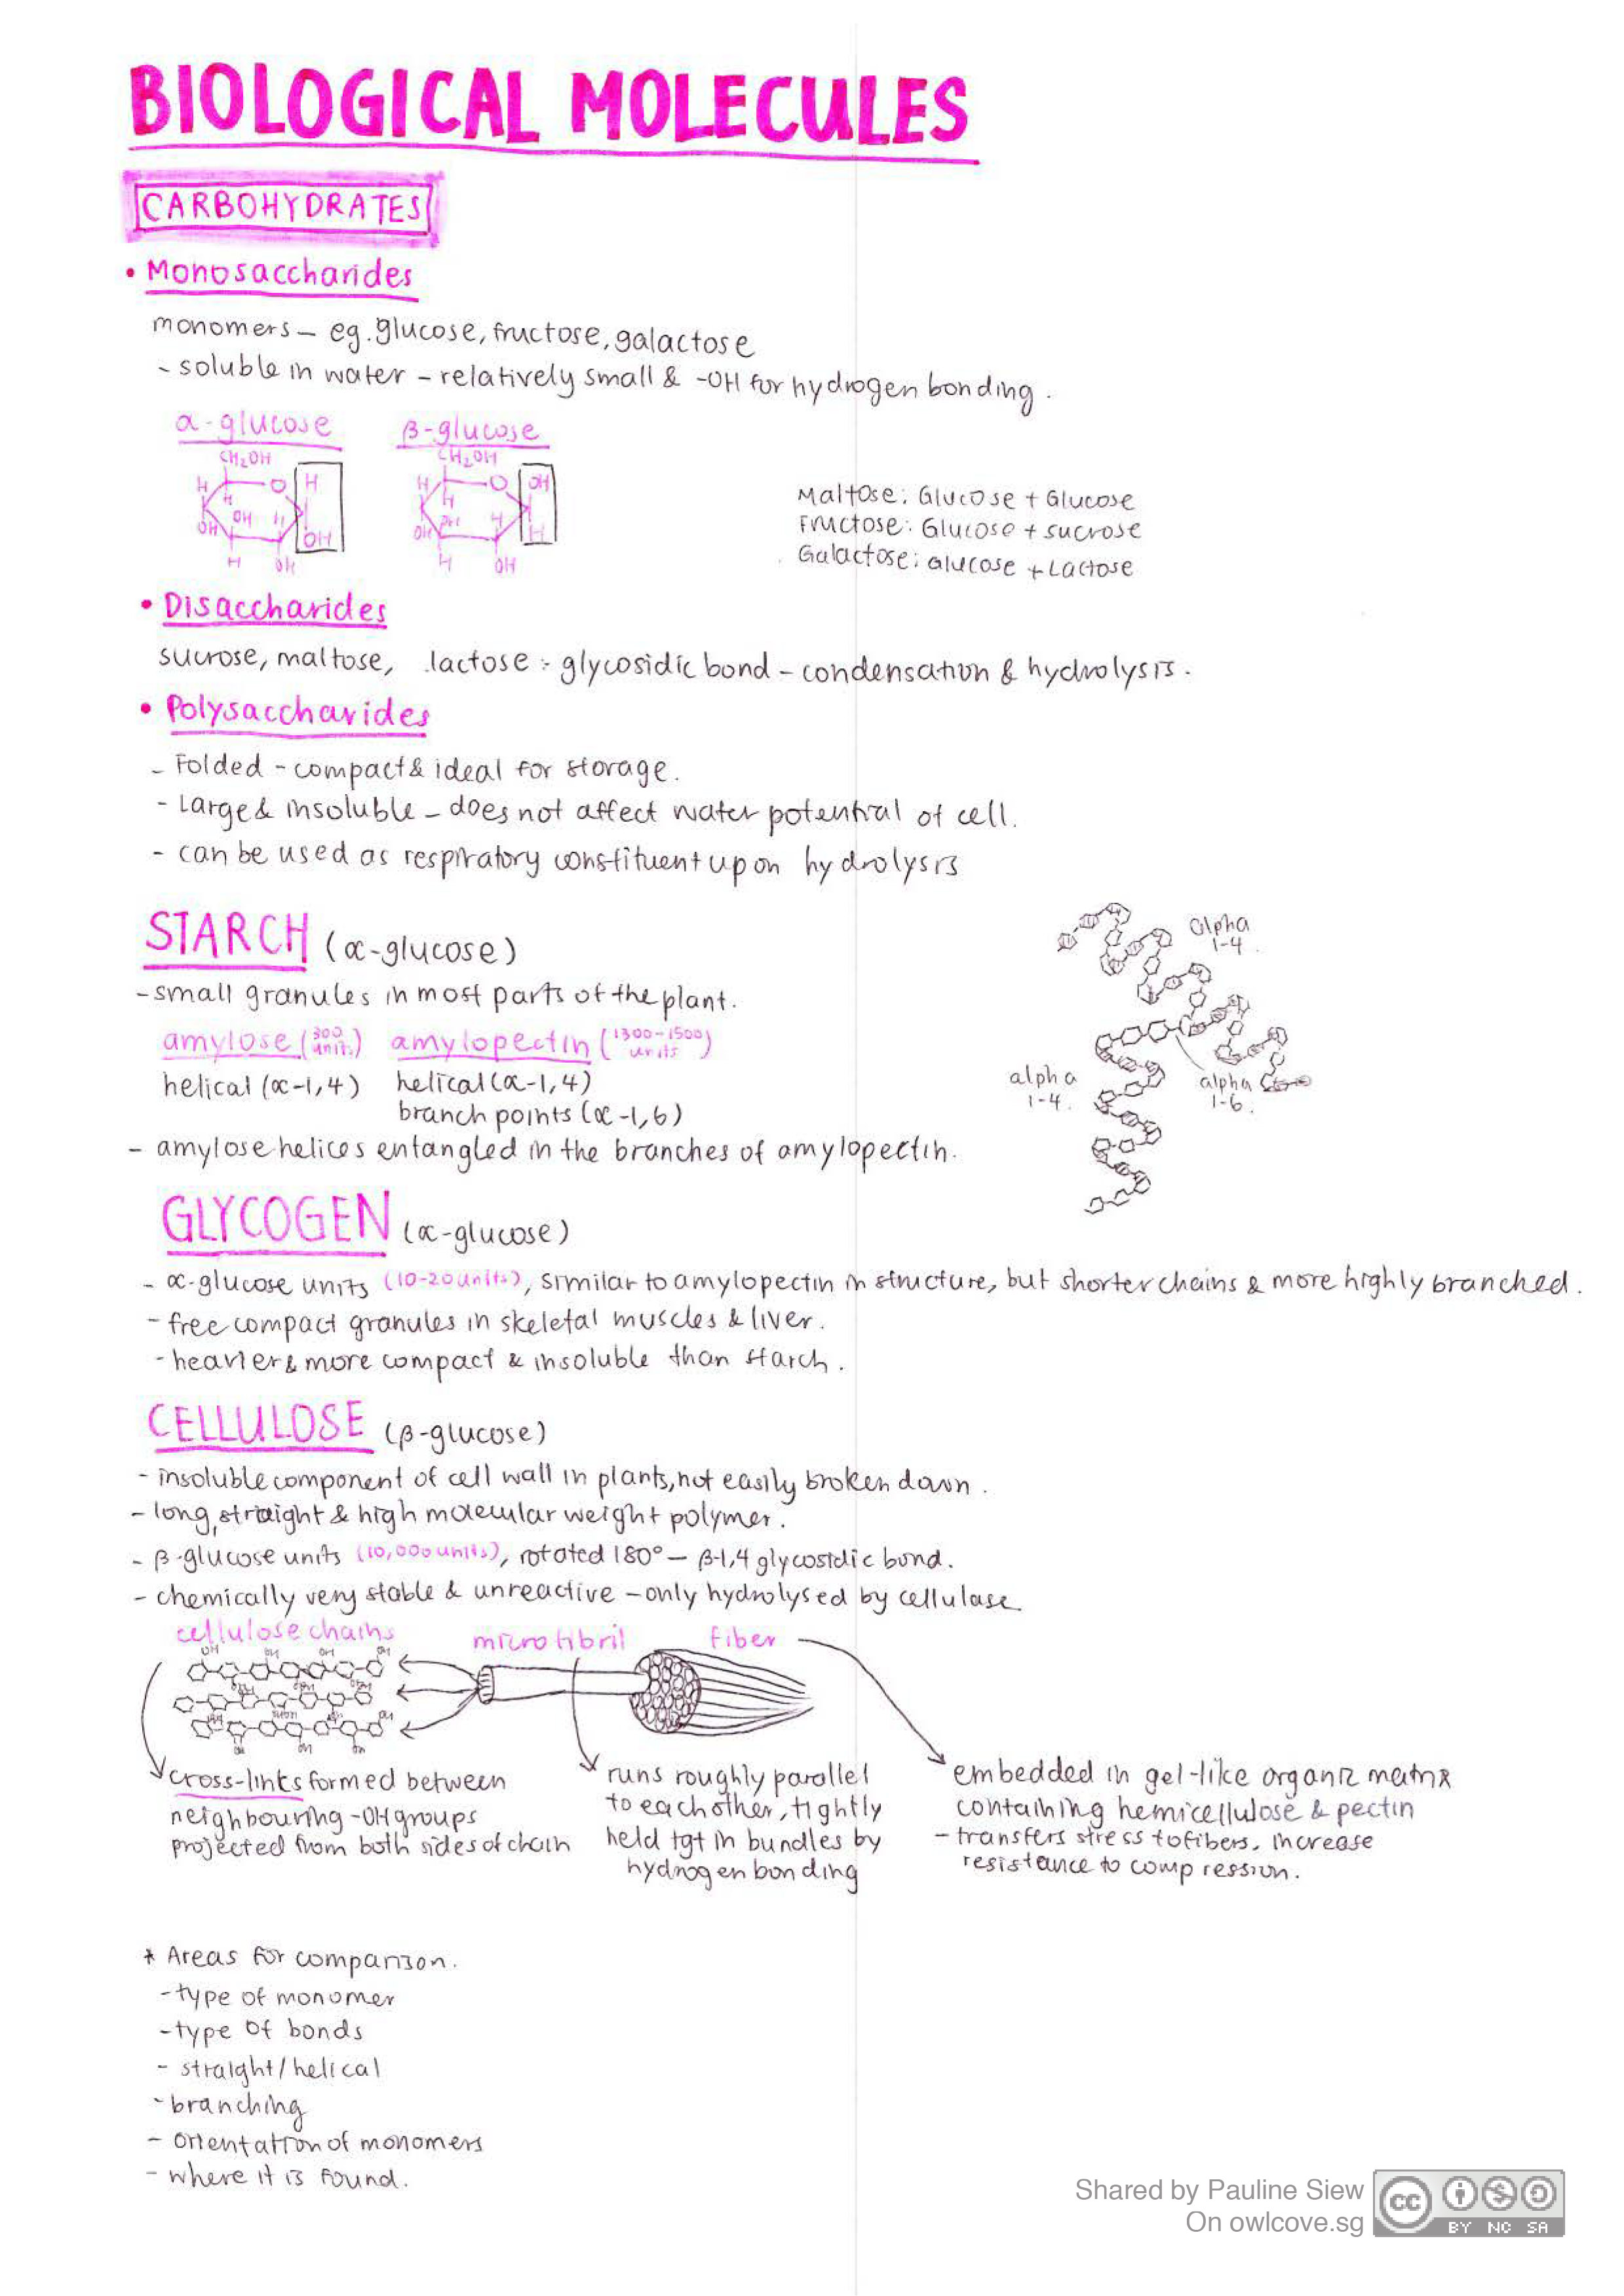 BIOLOGICAL MOLECULES
CARBOHYDRATES
• Monosaccharides
monomers – eg. glucose, fructose, galactose
- soluble in water – relatively small & -OH for hydrogen bonding.
α-glucose β-glucose
CH₂OH CH₂OH
H O H H O OH
H H
OH OH H OH OH OH H H
H OH H OH
Maltose: Glucose + Glucose
Fructose: Glucose + sucrose
Galactose: Glucose + Lactose
• Disaccharides
sucrose, maltose, lactose : glycosidic bond – condensation & hydrolysis.
• Polysaccharides
- Folded – compact & ideal for storage.
- Large & insoluble – does not affect water potential of cell.
- can be used as respiratory constituent upon hydrolysis
STARCH (α-glucose)
- small granules in most parts of the plant.
amylose (300 units) amylopectin (1300-1500 units)
helical (α-1,4) helical (α-1,4)
branch points (α-1,6)
- amylose helices entangled in the branches of amylopectin.
alpha
1-4.
alpha
1-4.
alpha
1-6.
GLYCOGEN (α-glucose)
- α-glucose units (10-20 units), similar to amylopectin in structure, but shorter chains & more highly branched.
- free compact granules in skeletal muscles & liver.
- heavier & more compact & insoluble than starch.
CELLULOSE (β-glucose)
- insoluble component of cell wall in plants, not easily broken down.
- long, straight & high molecular weight polymer.
- β-glucose units (10,000 units), rotated 180° – β-1,4 glycosidic bond.
- chemically very stable & unreactive – only hydrolysed by cellulase
cellulose chains microfibril fiber
OH OH OH OH
cross-links formed between
neighbouring -OH groups
projected from both sides of chain
runs roughly parallel
to each other, tightly
held tgt in bundles by
hydrogen bonding
embedded in gel-like organic matrix
containing hemicellulose & pectin
- transfers stress to fibers, increase
resistance to compression.
* Areas for comparison.
- type of monomer
- type of bonds
- straight/helical
- branching
- orientation of monomers
- where it is found.
Shared by Pauline Siew
On owlcove.sg
cc
BY NC SA